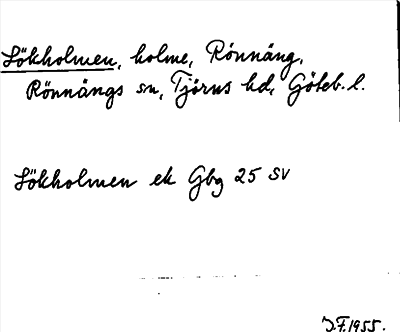 Sökholmen, holme, Rönnäng,
Rönnängs sn, Tjörns hd, Göteb. l.
Sökholmen ek Gbg 25 SV
J.F. 1955.